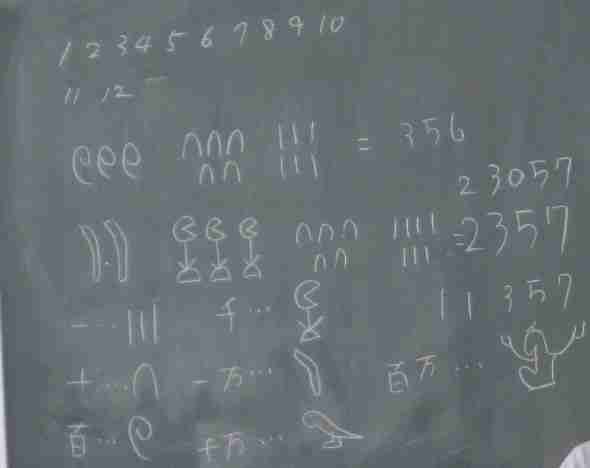 1 2 3 4 5 6 7 8 9 10
11 12
𓍢𓍢𓍢 ∩∩∩∩∩ |||||| = 356
23057
𓂭𓂭 𓆼𓆼𓆼 ∩∩∩∩∩ ||||||| = 2357
11357
一…||| 千…𓆼
十…∩ 一万…𓂭 百万…𓁨
百…𓍢 十万…𓆐